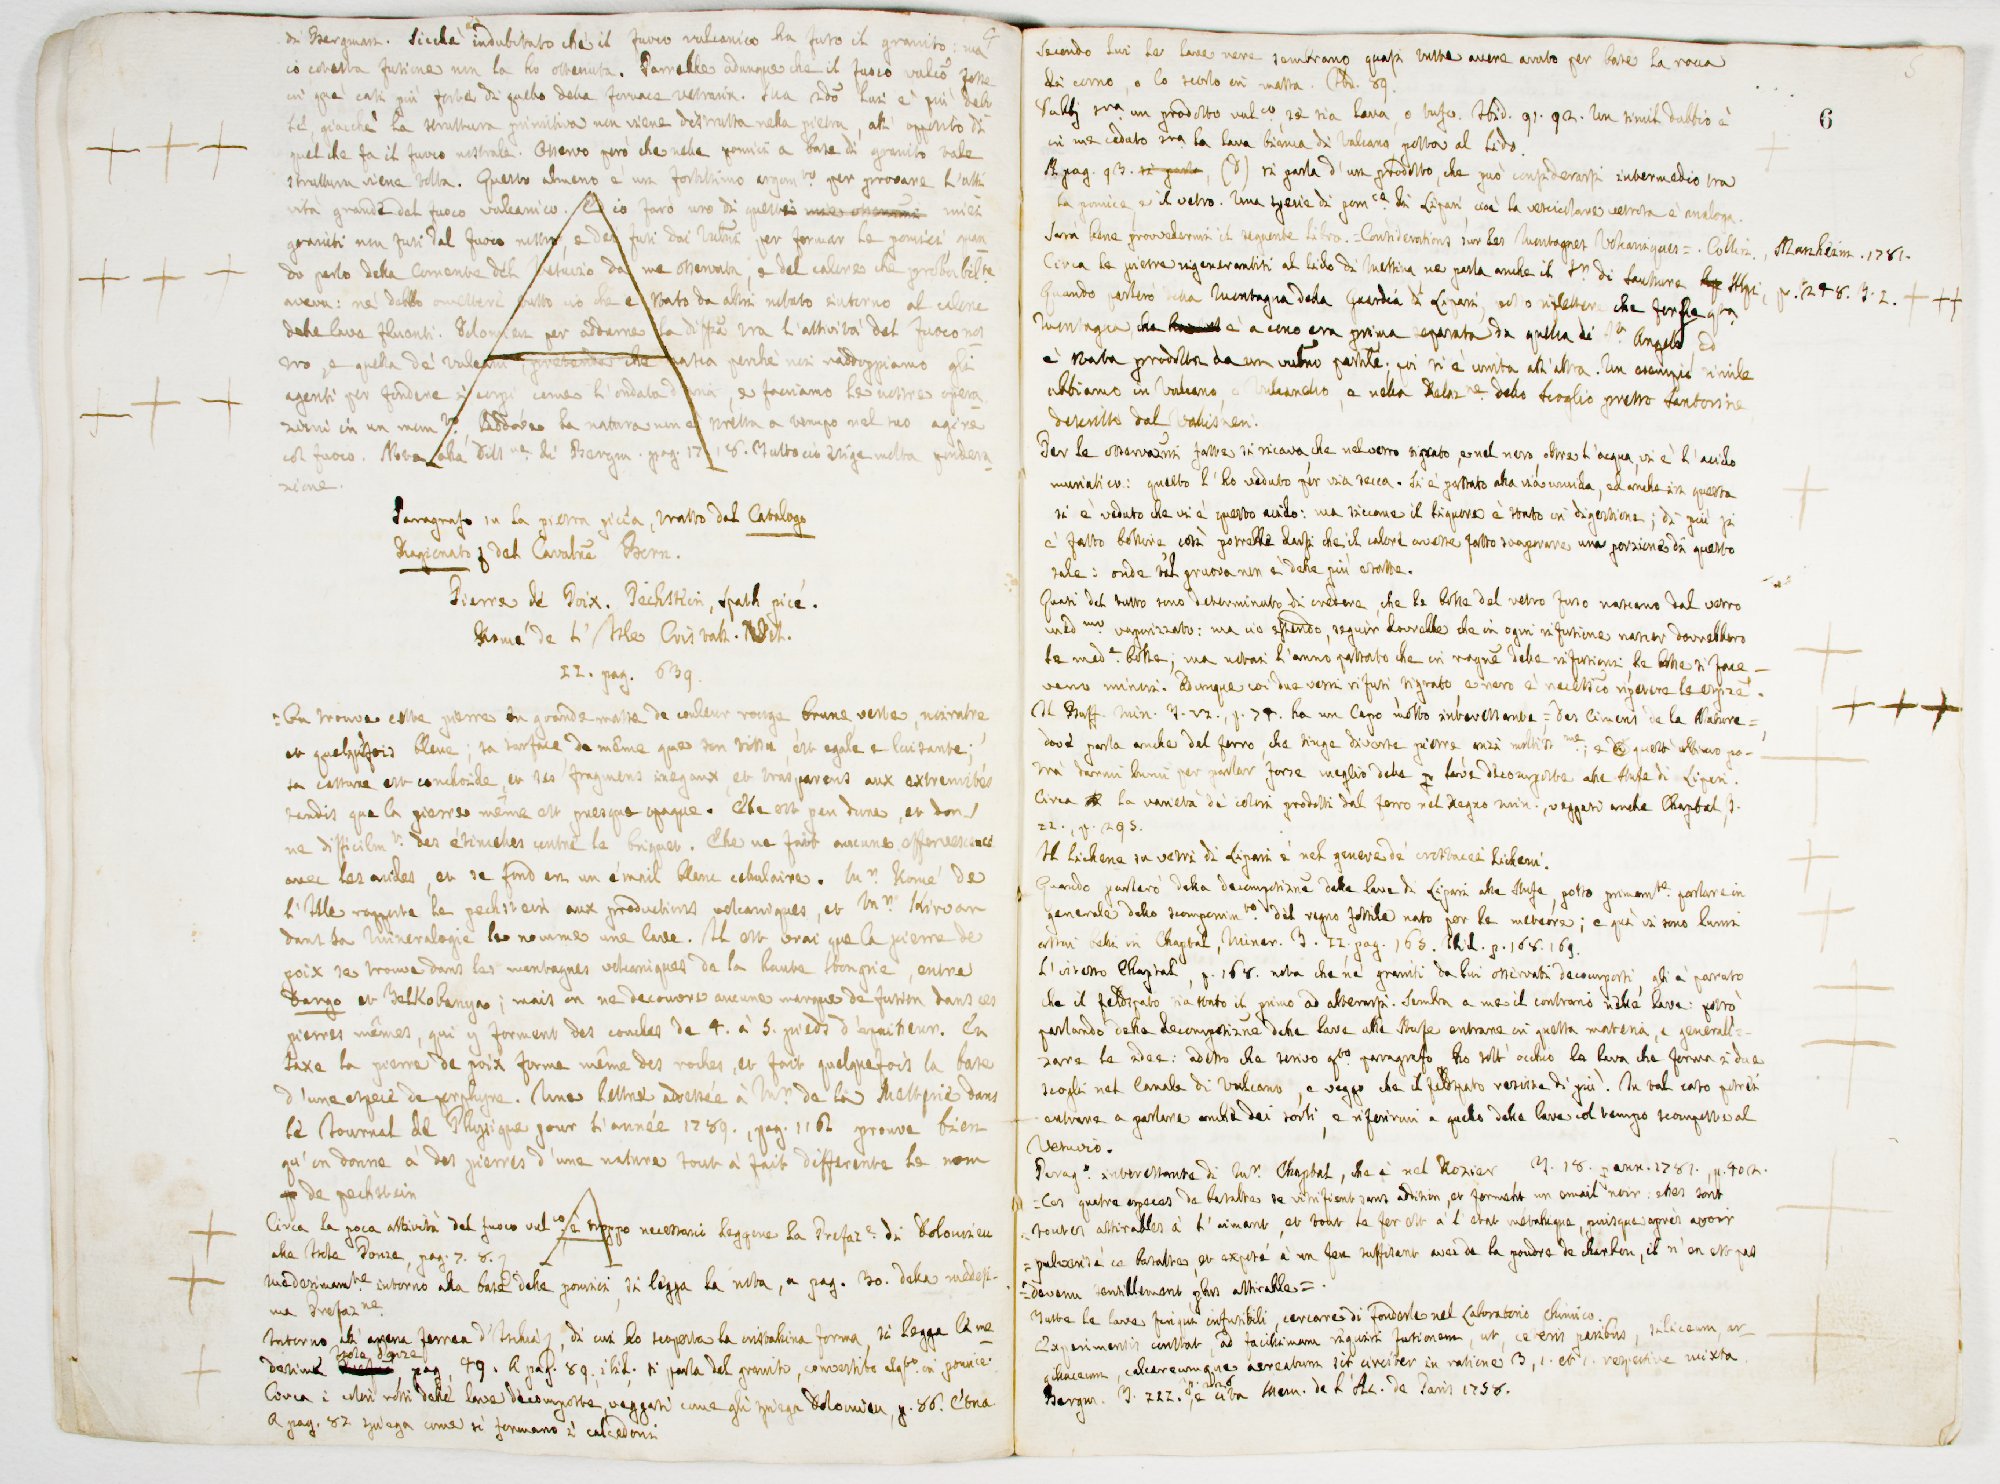 di Bergman. Sicché indubitato che il fuoco vulcanico ha fuso il granito: ma
io cotesta fusione non la ho ottenuta. Parrebbe adunque che il fuoco vulco fosse
in que' casi più forte di quello della fornace vetraria. Ma sdo lui è più debo
le, giacché la struttura primitiva non viene distrutta nella pietra, all'opposito di
quel che fa il fuoco nostrale. Osservo però che nelle pomici a base di granito tale
struttura viene tolta. Questo almeno è un fortissimo argomto per provare l'atti
vità grande del fuoco vulcanico. E io farò uso di questi miei
graniti non fusi dal fuoco nostro, e dei fusi dai Vulcni per formar le pomici quan
do parlo della Corrente del Vesuvio da me osservata, e del calore che probabilte
aveva: né debbo ommettere tutto ciò che è stato da altri notato intorno al calore
delle lave fluenti. Dolomieu per addurne la diffza tra l'attività del fuoco nos
tro, e quella de' vulcani, pretende che nasca perché noi raddoppiamo gli
agenti per fondere i corpi come l'ondata d'aria, e facciamo le nostre opera
zioni in un momto. Laddove la natura non è stretta a tempo nel suo agire
col fuoco. Nota alla Dissne di Bergm. pag. 17. 18. Tutto ciò esige molta pondera
zione.
Paragrafo su la pietra picea, tratto dal Catalogo
Ragionato del Cavalre Born.
Pierre de Poix. Pechstein, spath picé.
Romé de l'Isle Cristall. Vol.
II. pag. 639.
= On trouve cette pierre en grande masse de couleur rouge brune verte, noiratre
et quelquefois bleue; sa surface de même que son tissu est egale e luisante;
sa cassure est conchoide, et ses fragmens inegaux, et trasparens aux extremités
tandis que la pierre même est presque opaque. Elle est peu dure, et don
ne difficilmt des étincelles contre le briquet. Elle ne fait aucune effervescence
avec les acides, et se fond en un émail blanc cellulaire. Mr. Romé de
l'Isle rapporte le pechstein aux productions volcaniques, et Mr. Kirvan
dans sa Mineralogie le nomme une lave. Il est vrai que la pierre de
poix se trouve dans les montagnes volcaniques de la haute Hongrie, entre
Dargo et Telkobanya; mais on ne decouvre aucune marque de fusion dans ces
pierres mêmes, qui y forment des couches de 4. à 5. pieds d'epaisseur. En
Saxe la pierre de poix forme même des roches, et fait quelquefois la base
d'une espece de porphyre. Une lettre adressée à Mr. de la Metherie dans
le Journal de Physique pour l'année 1789., pag. 116. prouve bien
qu'on donne à des pierres d'une nature tout à fait differente le nom
de pechstein
Circa la poca attività del fuoco vulco è troppo necessario leggere la Prefaze di Dolomieu
alle Isole Ponze, pag. 7. 8.
Medesimamte intorno alla base delle pomici, si legga la nota, a pag. 30. della medesi-
ma Prefazne
Intorno alla arena ferrea d'Ischia, di cui ho scoperta la cristallina forma, si legga la me
desima Isole Ponze, pag. 49. A pag. 89. ibid. si parla del granito, convertito in pomice.
Circa i colori rossi delle lave decomposte, veggasi come gli spiega Dolomieu, p. 86. Etna
A pag. 82 spiega come si formano i calcedoni
6
Secondo lui le lave nere sembrano quasi tutte avere avuto per base la roca
di corno, o lo scorlo in massa. Ibid. 89.
Dubbj sra un prodotto vulco, se sia lava, o tufo. Ibid. 91. 92. Un simil dubbio è
in me caduto sra la lava bianca di Vulcano posta al Lido.
A pag. 93. (D) si parla d'un prodotto, che può considerarsi intermedio tra
la pomice, e il vetro. Una specie di pomce di Lipari, cioè la vescicolare vetrosa è analoga.
Sarà bene provvedermi il seguente libro. = Considerations sur les Montagnes Volcaniques =. Collini, Manheim. 1781.
Circa le pietre rigenerantisi al lido di Messina ne parla anche il Sr. di Saussure Alpi, p. 248. T. I.
Quando parlerò della Montagna della Guardia di Lipari, rifletterò che forse qta
Montagna, che è a cono era prima separata da quella di St. Angelo ed
è stata prodotta da un vulcno partte, poi si è unita all'altra. Un esempio simile
abbiamo in Vulcano, e Vulcanello, e nella Relazne dello Scoglio presso Santorine
descritto dal Valisneri.
Per le osservazni fatte si ricava, che nel vetro tigrato, e nel nero oltre l'acqua, vi è l'acido
muriatico: questo l'ho veduto per via secca. Si è passato alla via umida, ed anche in questa
si è veduto che vi è questo acido: ma siccome il liquore è stato in digestione; di più si
è fatto bollire così potrebbe darsi che il calore avesse fatto svaporare una porzione di questo
sale: onde tal pruova non è delle più esatte.
Quasi del tutto sono determinato di credere, che le bolle del vetro fuso nascano dal vetro
medmo vaporizzato: ma ciò essendo, seguir dovrebbe che in ogni rifusione nascer dovrebbero
le mede bolle; ma notai l'anno passato che in ragne delle rifusioni le bolle si face-
vano minori. Adunque coi due vetri rifusi tigrato e nero è necessrio ripetere le espize.
Il Buff. Min. T. VI., p. 74. ha un Capo molto interessante = Des Cimens de la Nature =,
dove parla anche del ferro, che tinge diverse pietre anzi moltissme; e questo articolo po-
trà darmi lumi per parlar forse meglio delle lave decomposte alle Stufe di Lipari.
Circa la varietà de' colori prodotti dal ferro nel Regno min., veggasi anche Chaptal, T.
II., p. 295.
Il Lichene su vetri di Lipari è nel genere de' crostacei Licheni.
Quando parlerò della decomposizne delle lave di Lipari alle Stufe, posso primamte parlare in
generale dello scomponimto del regno fossile nato per le meteore; e qua vi sono lumi
assai belli in Chaptal, Miner. T. II. pag. 165. Ibid. p. 168. 169.
L'istesso Chaptal, p. 168. nota che ne' graniti da lui osservati decomposti gli è paruto
che il feldspato sia stato il primo ad alterarsi. Sembra a me il contrario nelle lave: potrò
parlando della decomposizne delle lave alle Stufe entrare in questa materia, e generaliz-
zare le idee: adesso che scrivo qto paragrafo ho sott'occhio la lava che forma i due
scogli nel Canale di Vulcano, e veggo che il feldspato resiste di più. In tal caso potrei
entrare a parlare anche dei sorli, e riferirmi a quello delle lave col tempo scomposte al
Vesuvio.
Parago interessante di Mr. Chaptal, che è nel Rozier T. 18. ann. 1781., p. 402.
= Ces quatre especes de basaltes se vitrifient sans addition, et forment un email noir: elles sont
= toutes attirables à l'aimant, et tout le fer est à l'etat métallique, puisque après avoir
= pulverisé ce basalte, et exposé à un feu suffisant avec de la poudre de charbon, il n'en est pas
= devenu sensiblement plus attirable =.
Tutte le lave finqui infusibili, cercare di fonderle nel Laboratorio chimico.
Experimentis constat, ad facillimam requiri fusionem, ut, ceteris paribus, siliceum, ar-
gillaceum, calcareumque aereatum sit circiter in ratione 3, 1. et 1. respective mixta.
Bergm. T. III. e cita Mem. de l'Ac. de Paris 1758.